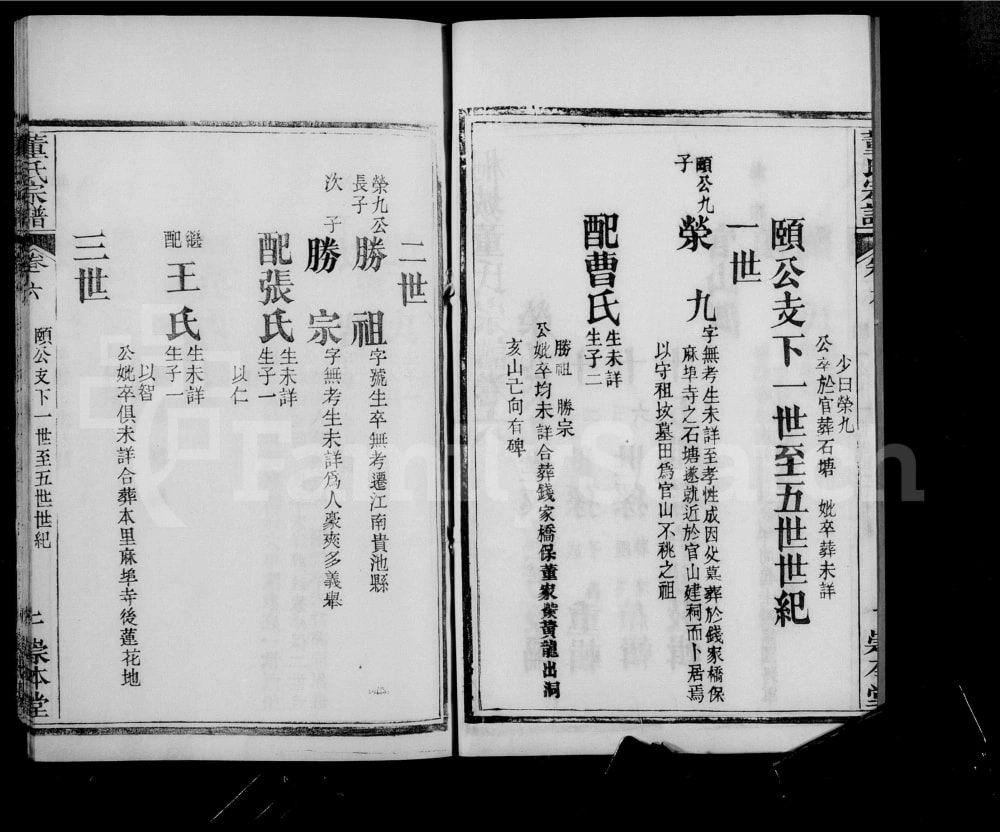 董氏宗譜
卷六
崇本堂
少曰榮九
公卒於官葬石塘 妣卒葬未詳
頤公支下一世至五世世紀
一世
頤公九子
榮九
字無考生未詳至孝性成因父墓葬於錢家橋保
麻埠寺之石塘遂就近於官山建祠而卜居焉
以守祖墳墓田為官山不祧之祖
配曹氏
生未詳
生子二
勝祖 勝宗
公妣卒均未詳合葬錢家橋保董家嶺黃龍出洞
亥山亡向有碑
二世
榮九公長子
勝祖
字號生卒無考遷江南貴池縣
次子
勝宗
字無考生未詳為人豪爽多義舉
配張氏
生未詳
生子一
以仁
繼配
王氏
生未詳
生子一
以智
公妣卒俱未詳合葬本里麻埠寺後蓮花地
三世
董氏宗譜
卷六
頤公支下一世至五世世紀
崇本堂
Family Search